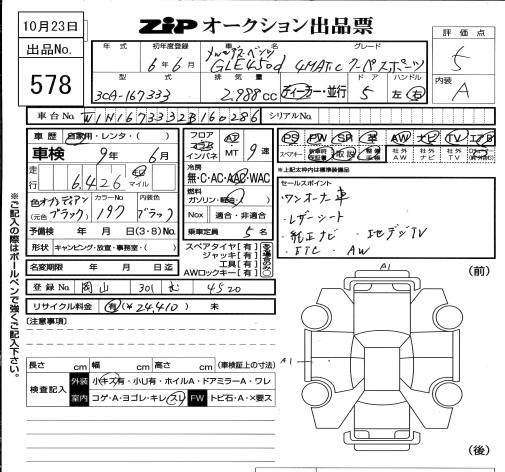 10月23日
ZIP オークション出品票
評価点
5
内装
A
出品No.
578
年式 初年度登録 車名 グレード
6年6月 メルセデス・ベンツ GLE450d 4MATIC クーペスポーツ
型式 排気量 ドア ハンドル
3CA-167333 2.988cc ディーラー・並行 5 左 右
車台No. W1N1673332B160286 シリアルNo.
車歴 自家用・レンタ・( )
車検 9年 6月
走行 6,426 km マイル
色 オブシディアンブラック (元色 ) カラーNo 197 内装色 ブラック
予備検 年 月 日(3・8)No.
形状 キャンピング・放宣・事務室・( )
名変期限 年 月 日迄
フロア コラム インパネ AT・MT 9速
冷房 無・C・AC・AAC・WAC
燃料 ガソリン・軽油・( )
Nox 適合・非適合
乗車定員 5名
スペアタイヤ[有]
ジャッキ[有]
工具[有]
AWロックキー[有]
PS PW SR 革 AW ナビ TV エアB
スペアキー 取説
社外AW 社外ナビ 社外TV
※上記太枠内は標準装備品
セールスポイント
・ワンオーナー車
・レザーシート
・純正ナビ ・地デジTV
・ETC ・AW
登録No. 岡山 301 む 4520
リサイクル料金 有(¥24,410) 未
(注意事項)
長さ cm 幅 cm 高さ cm (車検証上の寸法)
検査記入 外装 小キズ有・小U有・ホイルA・ドアミラーA・ワレ
室内 コゲ・A・ヨゴレ・キレ・スレ FW トビ石・A・×要ス
(前)
A1
A1
(後)
※ご記入の際はボールペンで強くご記入下さい。